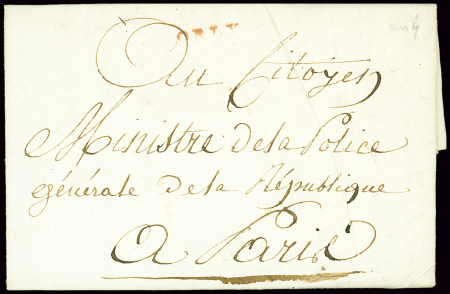 Au Citoyen
Ministre de la Police
générale de la République
a Paris